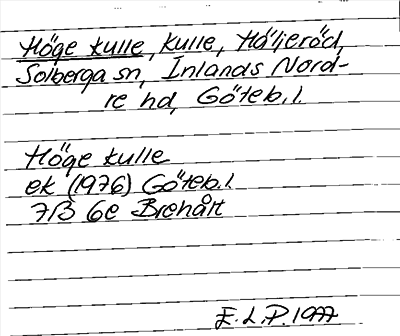 Höge kulle, Kulle, Häljeröd,
Solberga sn, Inlands Nord-
re hd, Göteb. l.
Höge kulle
ek (1976) Göteb. l.
7B 6e Brehålt
E. L. P. 1977